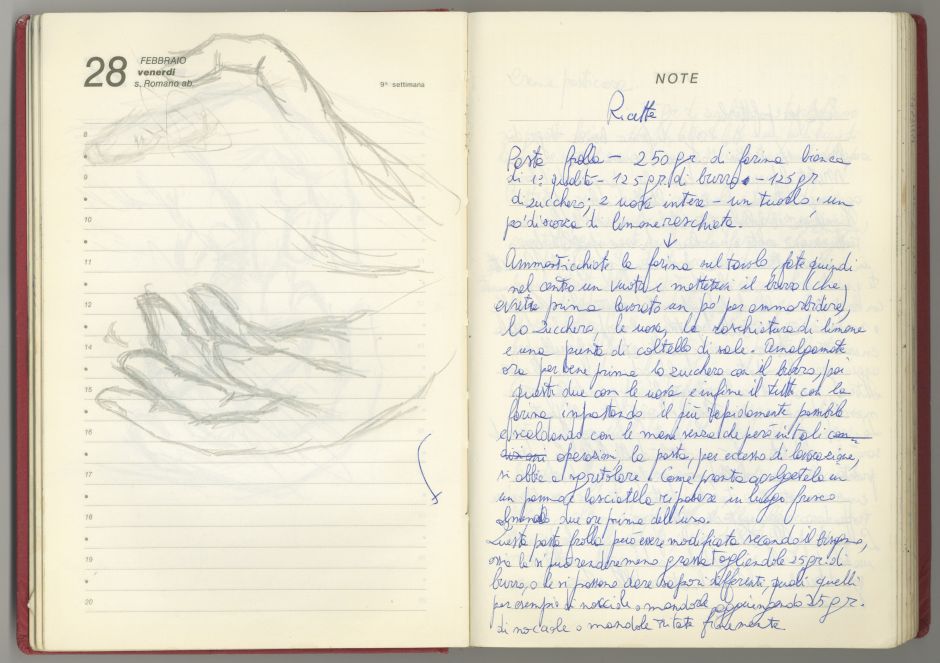 28
FEBBRAIO
venerdì
s. Romano ab.
9ª settimana
8
9
10
11
12
14
15
16
17
18
19
20
NOTE
Ricette
Pasta frolla – 250 gr. di farina bianca
di 1ª qualità – 125 gr di burro – 125 gr
di zucchero; 2 uova intere – un tuorlo; un
po' di scorza di limone raschiata.
Ammonticchiate la farina sul tavolo, fate quindi
nel centro un vuoto e mettetevi il burro (che
avrete prima lavorato un po' per ammorbidirlo),
lo zucchero, le uova, la raschiatura di limone
e una punta di coltello di sale. Amalgamate
ora per bene prima lo zucchero con il burro, poi
questi due con le uova e infine il tutto con la
farina impastando il più rapidamente possibile
e scaldando con le mani senza che però in tali con-
dizioni operazioni la pasta, per eccesso di lavorazione,
si abbia a sgretolare. Come pronta
un panno e lasciatela riposare in luogo fresco
almeno due ore prima dell'uso.
Questa pasta frolla può essere modificata secondo il bisogno,
ossia la si può rendere meno grassa togliendole 25 gr. di
burro, o le si possono dare sapori differenti, quali quelli
per esempio di nocciole o mandorle aggiungendo 25 gr.
di nocciole o mandorle tritate finemente